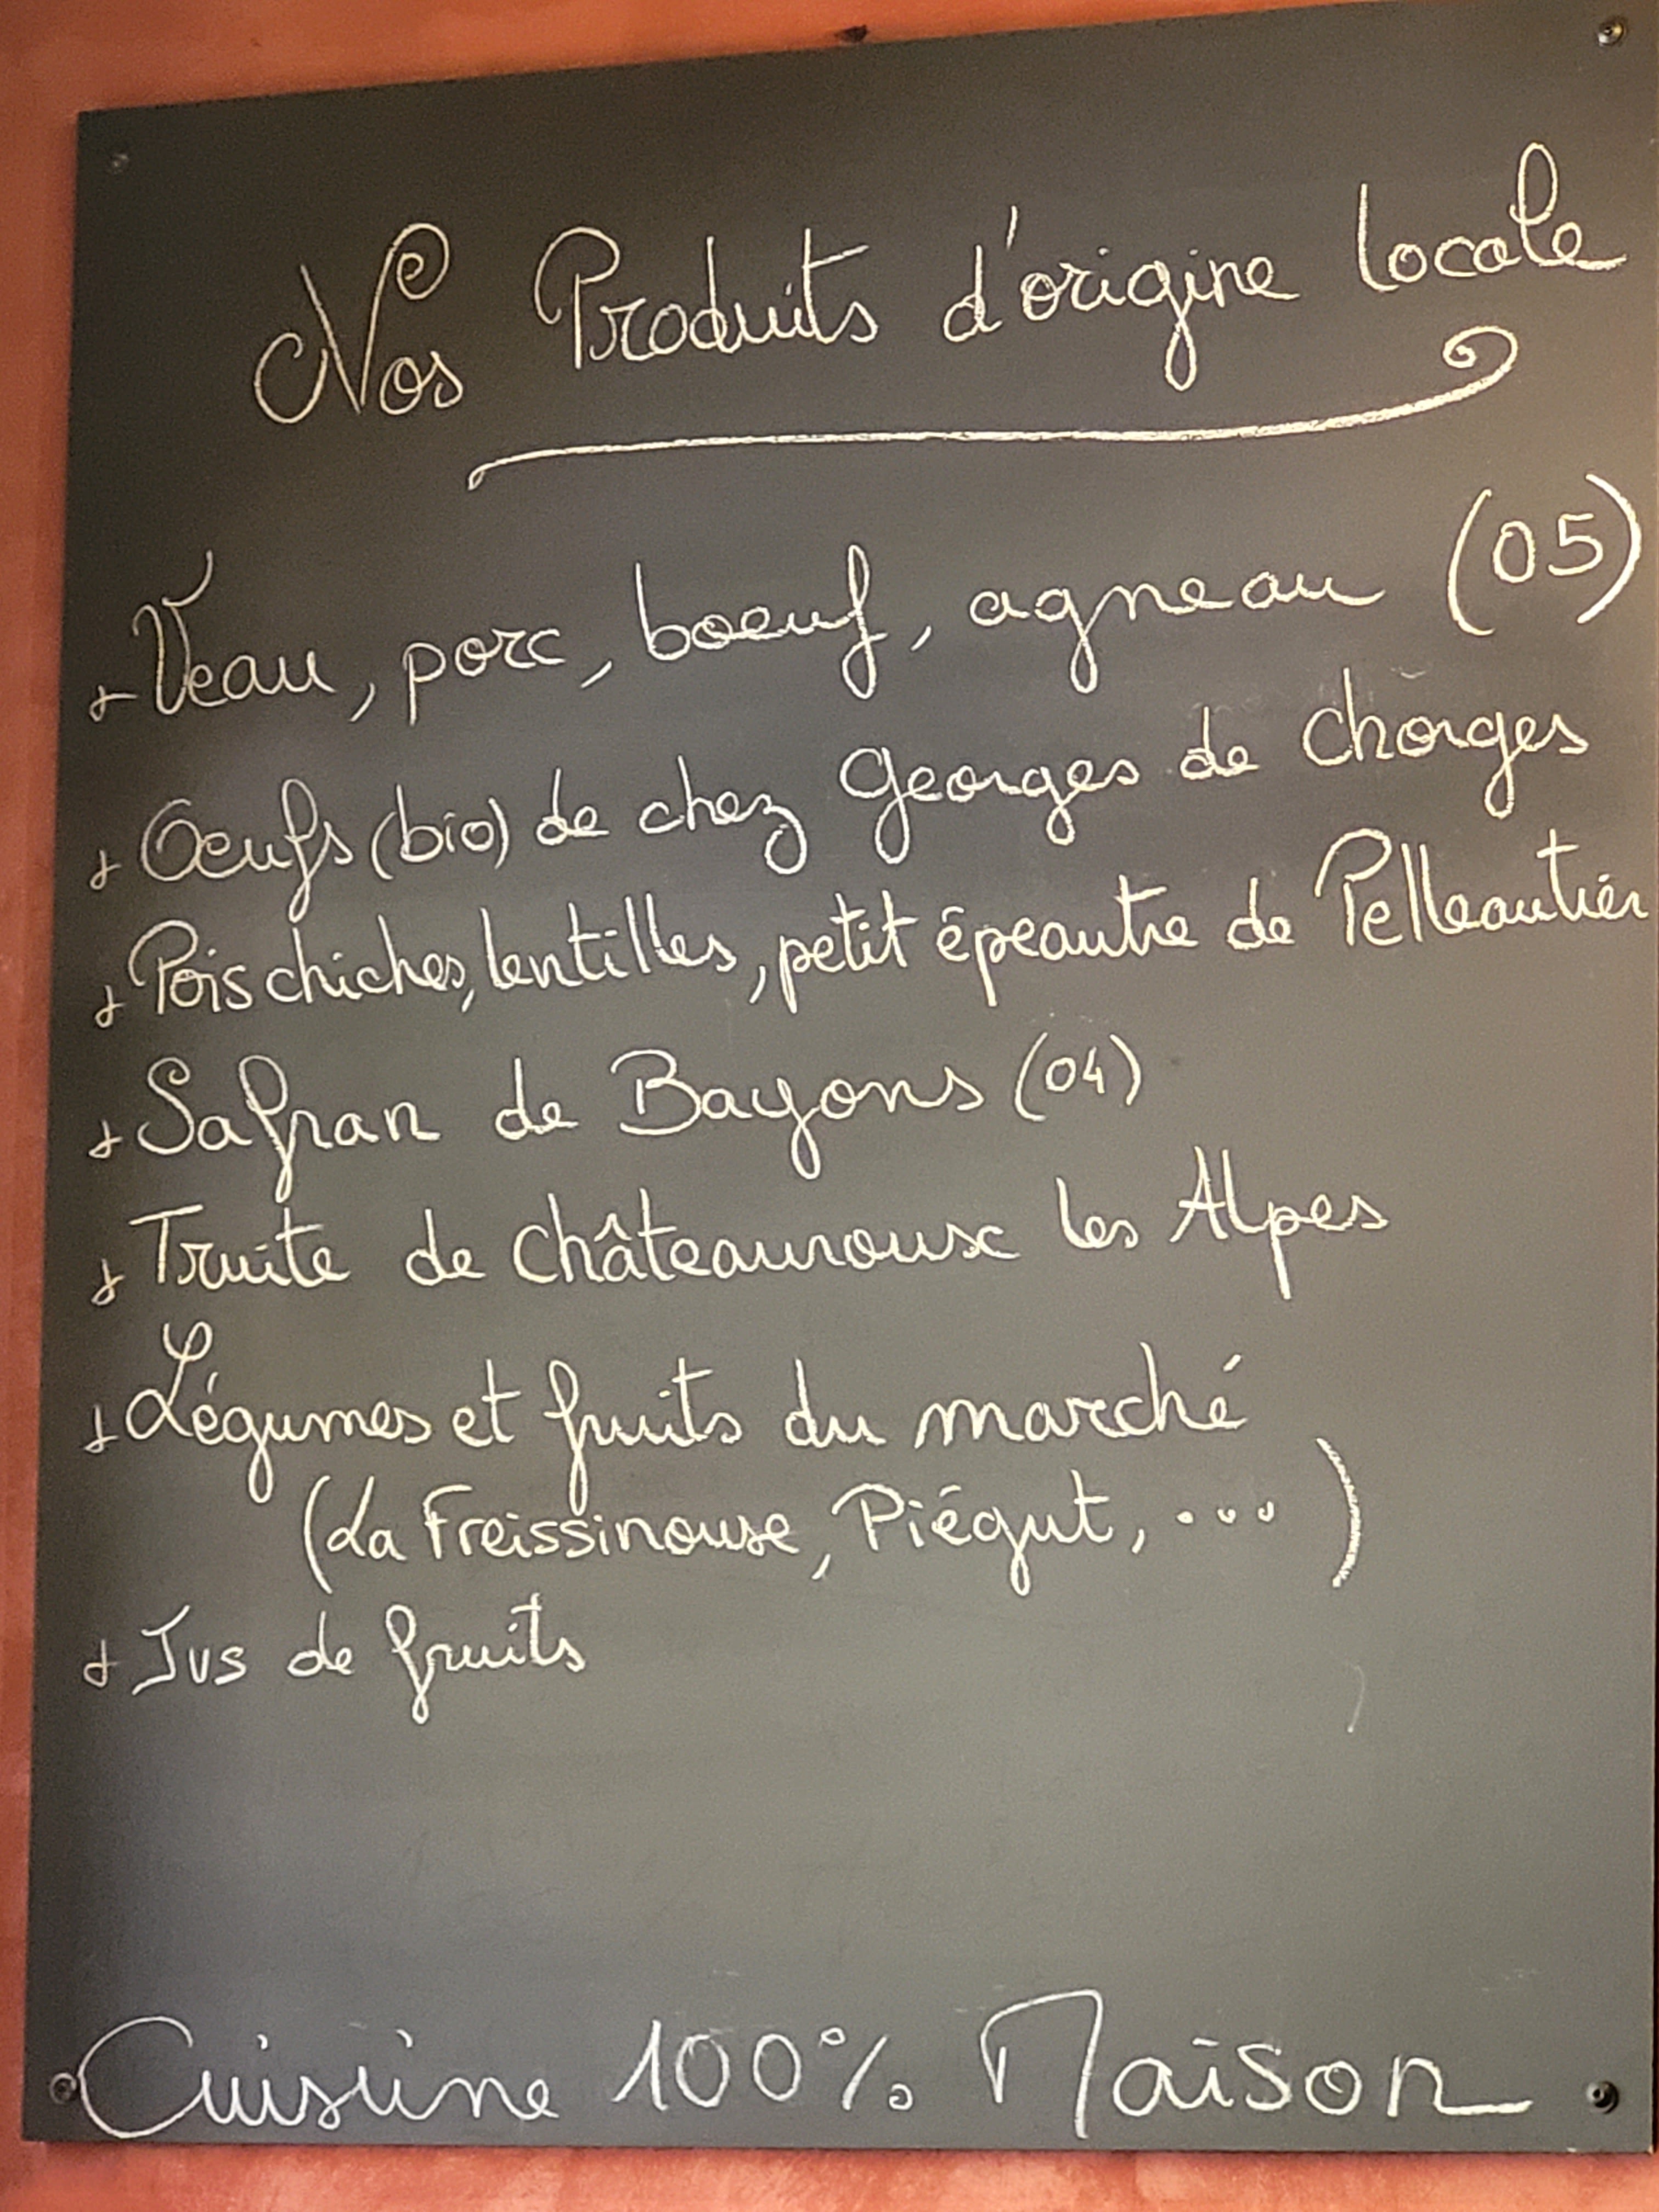 Nos Produits d'origine locale
+ Veau, porc, boeuf, agneau (05)
+ Oeufs (bio) de chez Georges de Chorges
+ Pois chiches, lentilles, petit épeautre de Pelleautier
+ Safran de Bayons (04)
+ Truite de Châteauroux les Alpes
+ Légumes et fruits du marché
(La Freissinouse, Piégut, ...)
+ Jus de fruits
Cuisine 100% Maison